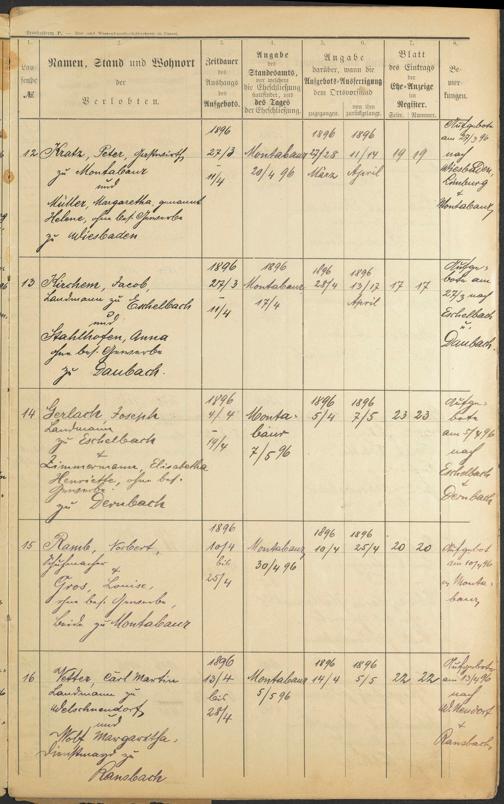 1.
2.
3.
4.
5.
6.
7.
8.
Lau-
fende
№
Namen, Stand und Wohnort
der
Verlobten.
Zeitdauer
des
Aushangs
des
Aufgebots.
Angabe
des
Standesamts,
vor welchem
die Eheschließung
stattfindet, und
des Tages
der Eheschließung.
Angabe
darüber, wann die
Aufgebots-Ausfertigung
dem Ortsvorstand
zugegangen.
von ihm
zurückgelangt.
Blatt
des Eintrags
der
Ehe-Anzeige
im
Register.
Seite.
Nummer.
Be-
mer-
kungen.
12
Kratz, Peter, Gastwirth
zu Montabaur
und
Müller, Margaretha, genannt
Helene, ohne bes. Gewerbe
zu Wiesbaden
1896
27/3
11/4
Montabaur
20/4 96
1896
27/28
März
1896
11/14
April
19
19
Aufgebote
am 27/3 96
nach
Wiesbaden,
Limburg
+
Montabaur
13
Kirchem, Jacob,
Landmann zu Eschelbach
und
Stahlhofen, Anna
ohne bes. Gewerbe
zu Daubach.
1896
27/3
–
11/4
1896
Montabaur
17/4
1896
28/4
1896
13/17
April
17
17
Aufge-
bote am
27/3 nach
Eschelbach
u.
Daubach.
14
Gerlach Joseph
Landmann
zu Eschelbach
+
Zimmermann, Elisabetha
Henriette, ohne bes.
Gewerbe
zu Dernbach
1896
4/4
–
19/4
Monta-
baur
7/5 96
1896
5/4
1896
7/5
23
23
Aufge-
bote
am 5/4 96
nach
Eschelbach
+
Dernbach
15
Ramb, Norbert,
Schuhmacher
+
Gros, Louise,
ohne bes. Gewerbe,
beide zu Montabaur
1896
10/4
bis
25/4
Montabaur
30/4 96
1896
10/4
1896
25/4
20
20
Aufgebot
am 10/4 96
Monta-
baur
16
Vetter, Carl Martin
Landmann zu
Welschneudorf
und
Wolf Margaretha,
Dienstmagd zu
Ransbach
1896
13/4
bis
28/4
Montabaur
5/5 96
1896
14/4
1896
5/5
22
22
Aufgebote
am 13/4 96
nach
W.Neudorf
+
Ransbach